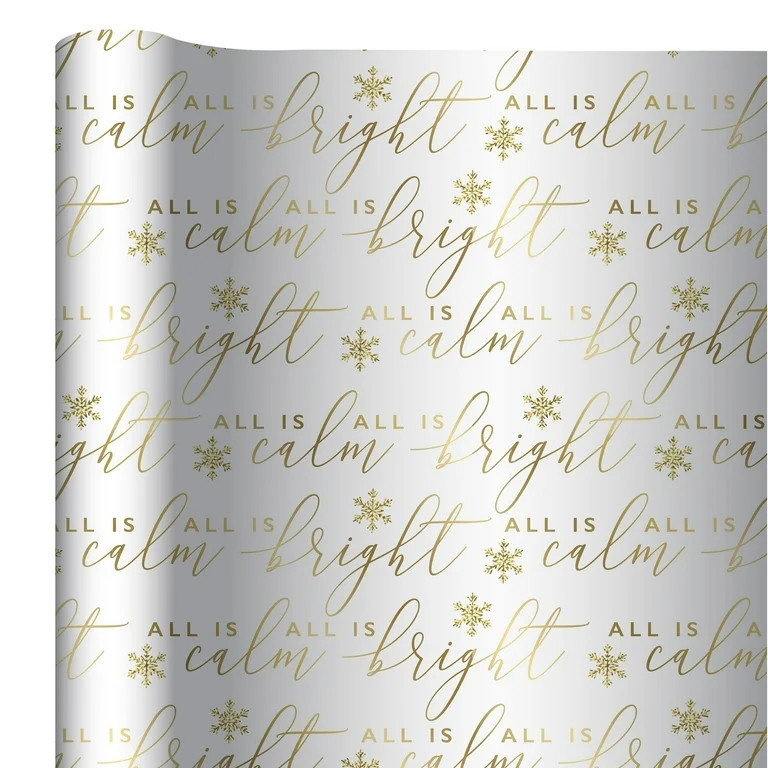 ght
ALL IS calm ALL IS bright ALL IS calm ALL IS b
t ALL IS calm ALL IS bright ALL IS calm A
LL IS bright ALL IS calm ALL IS bright
ight ALL IS calm ALL IS bright ALL IS ca
ALL IS calm ALL IS bright ALL IS calm ALL IS b
t ALL IS calm ALL IS bright ALL IS calm A
LL IS bright ALL IS calm ALL IS bright